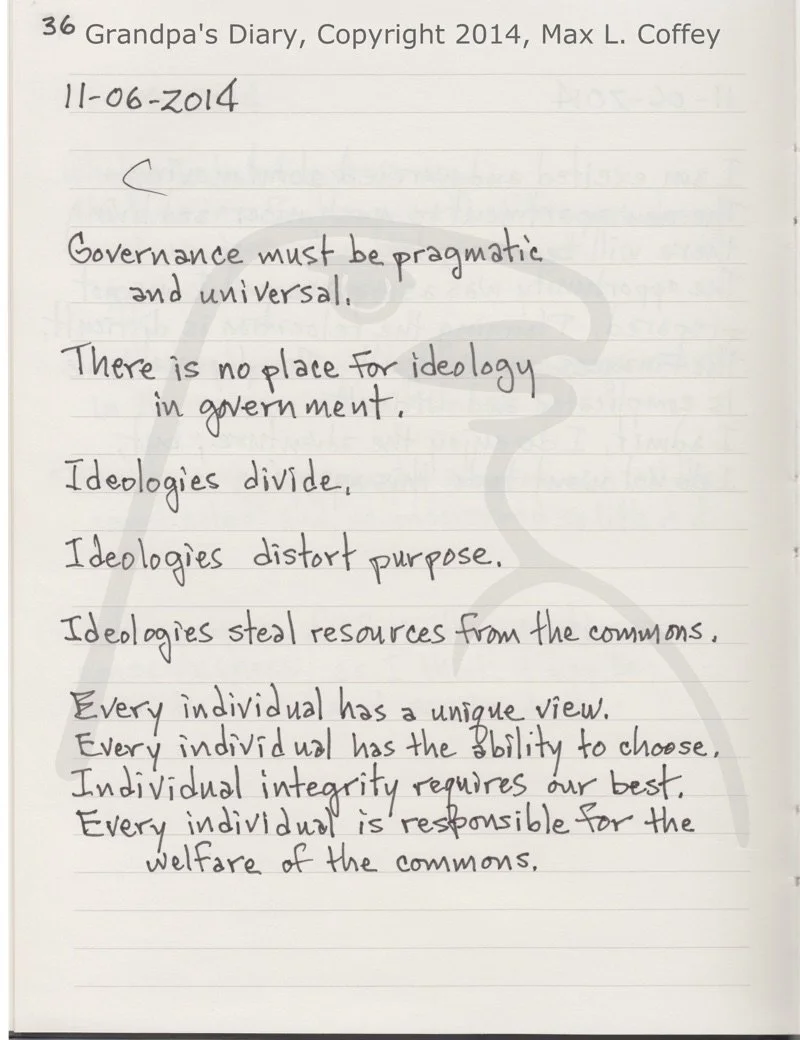 36 Grandpa's Diary, Copyright 2014, Max L. Coffey
11-06-2014
Governance must be pragmatic
and universal.
There is no place for ideology
in government.
Ideologies divide.
Ideologies distort purpose.
Ideologies steal resources from the commons.
Every individual has a unique view.
Every individual has the ability to choose.
Individual integrity requires our best.
Every individual is responsible for the
welfare of the commons.